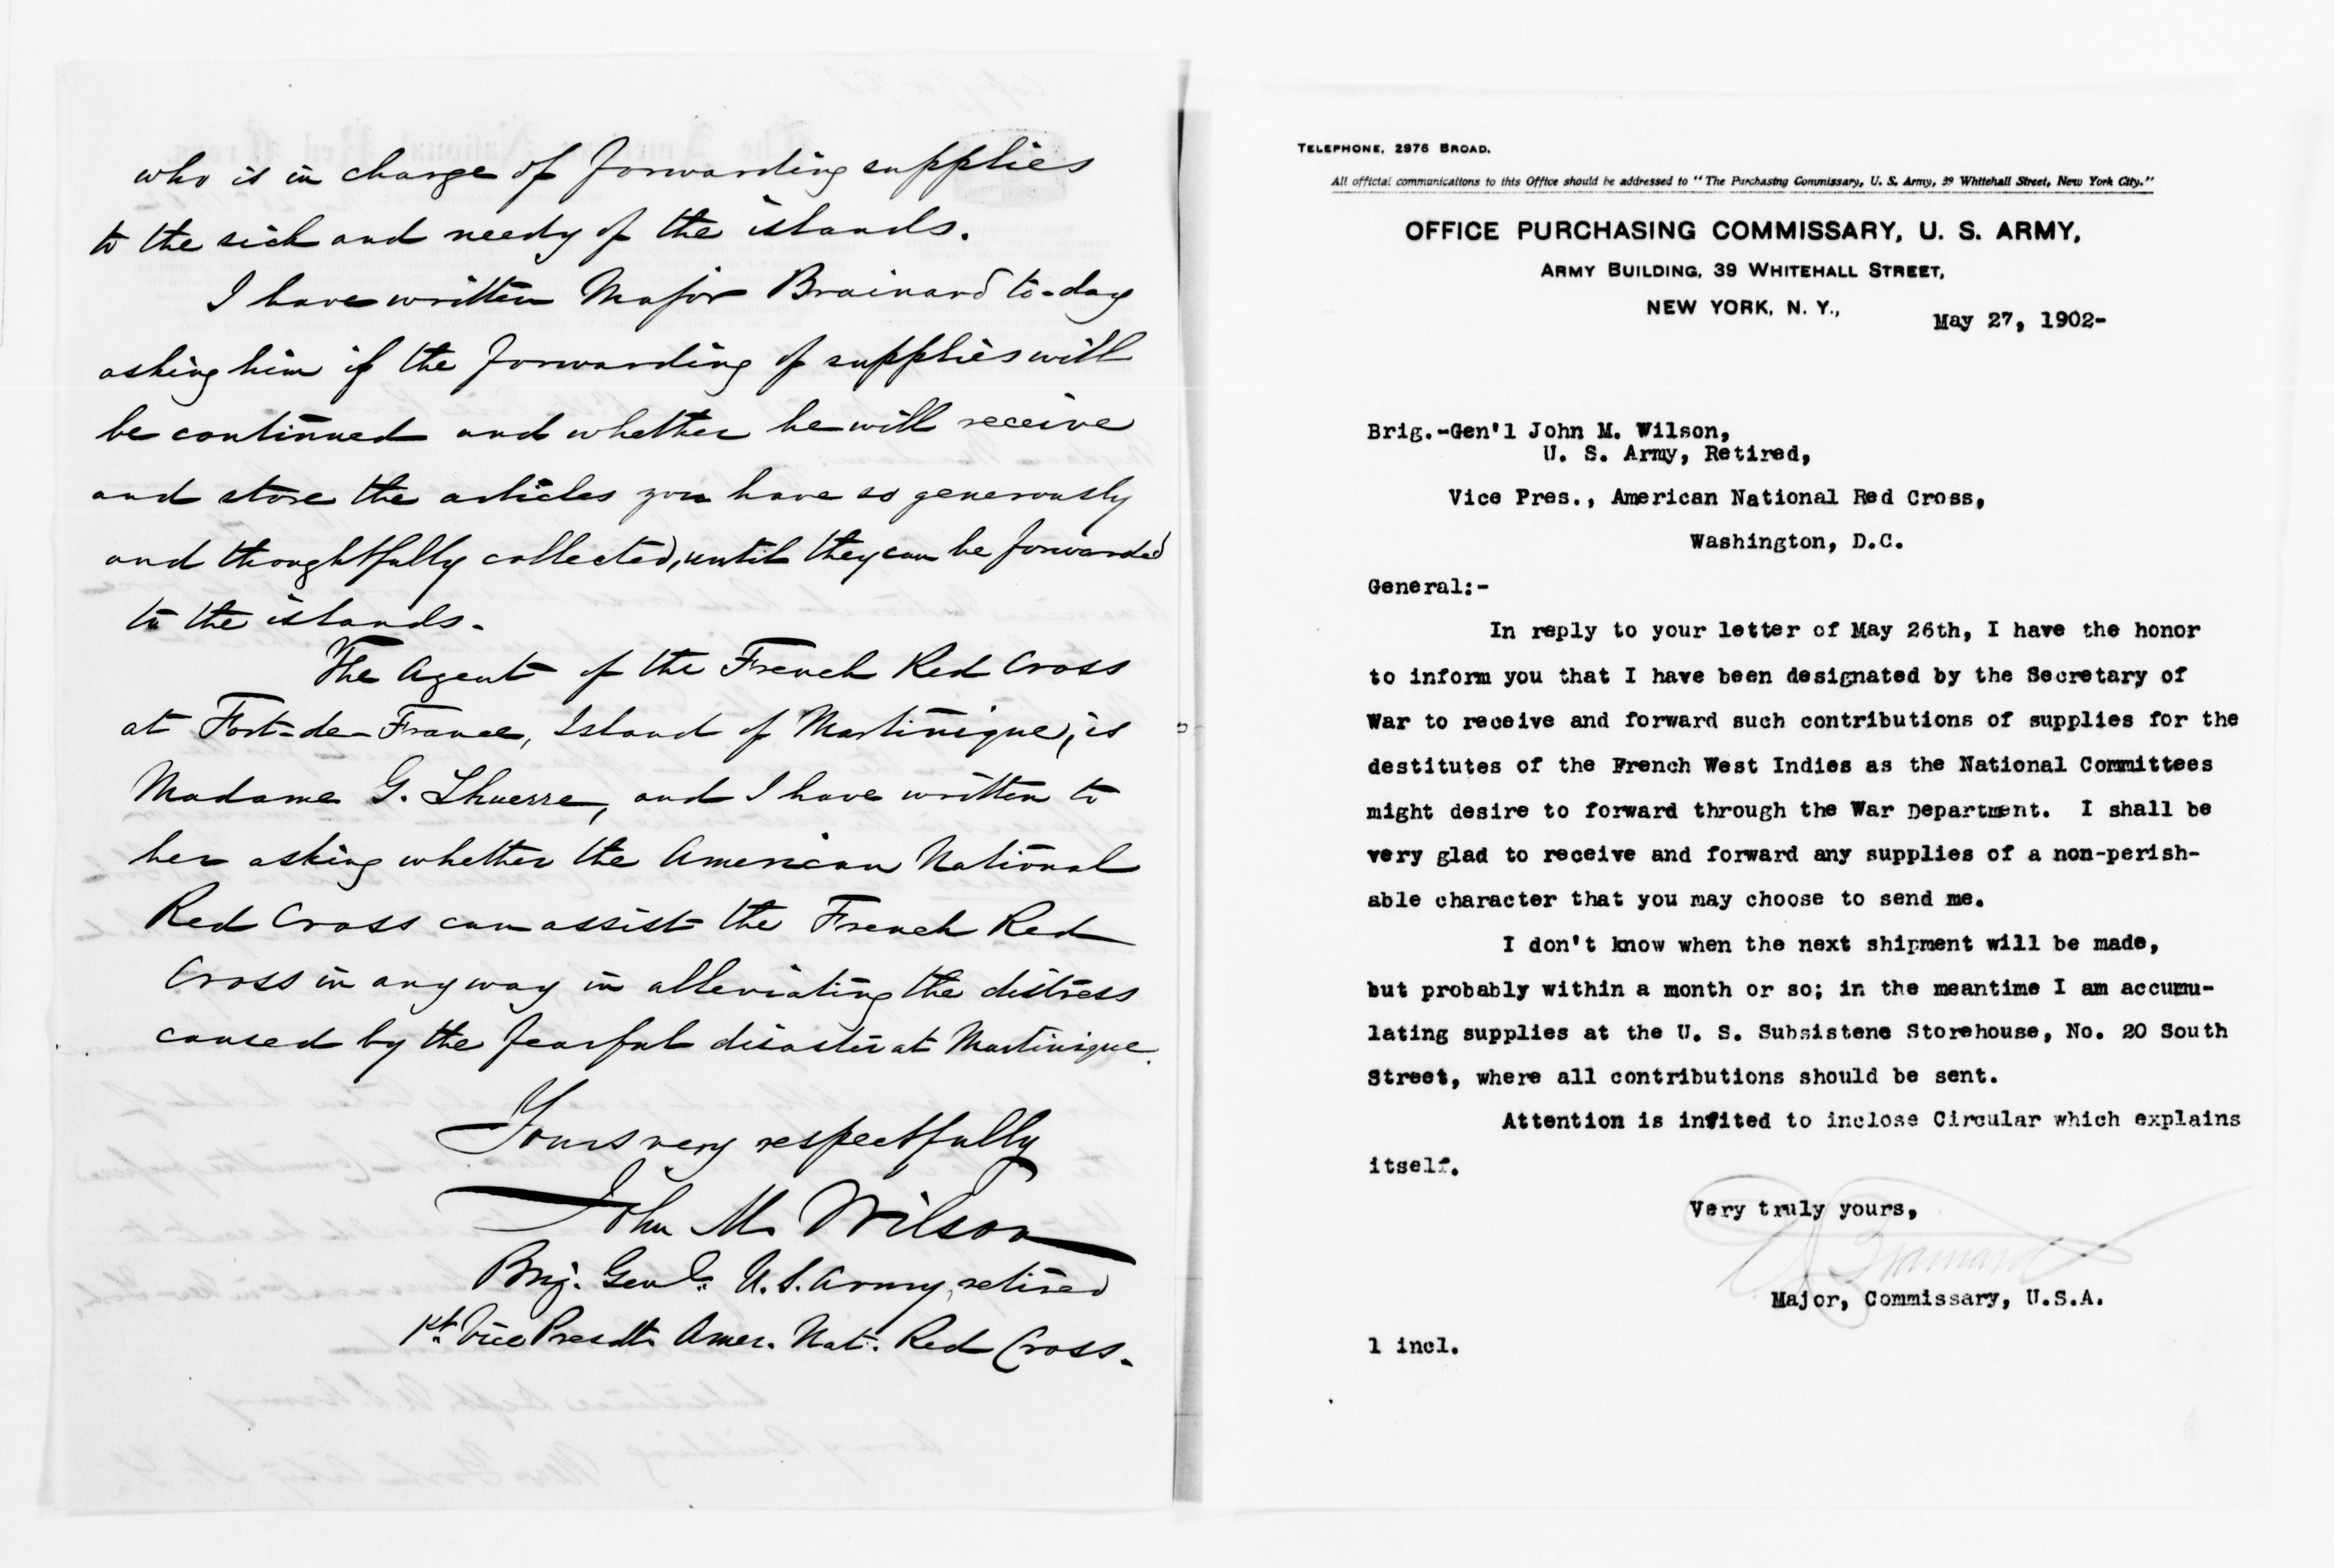 who is in charge of forwarding supplies
to the sick and needy of the islands.
I have written Major Brainard to-day
asking him if the forwarding of supplies will
be continued and whether he will receive
and store the articles you have so generously
and thoughtfully collected, until they can be forwarded
to the islands.
The Agent of the French Red Cross
at Fort-de-France, Island of Martinique, is
Madame G. Lhuerre, and I have written to
her asking whether the American National
Red Cross can assist the French Red
Cross in any way in alleviating the distress
caused by the fearful disaster at Martinique.
Yours very respectfully
John M. Wilson
Brig. Genl. U.S. Army, retired
1st. Vice Presdt. Amer. Nat. Red Cross.
TELEPHONE, 2976 BROAD.
All official communications to this Office should be addressed to "The Purchasing Commissary, U. S. Army, 39 Whitehall Street, New York City."
OFFICE PURCHASING COMMISSARY, U. S. ARMY,
ARMY BUILDING, 39 WHITEHALL STREET,
NEW YORK, N. Y.,
May 27, 1902-
Brig.-Gen'l John M. Wilson,
U. S. Army, Retired,
Vice Pres., American National Red Cross,
Washington, D.C.
General:-
In reply to your letter of May 26th, I have the honor
to inform you that I have been designated by the Secretary of
War to receive and forward such contributions of supplies for the
destitutes of the French West Indies as the National Committees
might desire to forward through the War Department. I shall be
very glad to receive and forward any supplies of a non-perish-
able character that you may choose to send me.
I don't know when the next shipment will be made,
but probably within a month or so; in the meantime I am accumu-
lating supplies at the U. S. Subsistene Storehouse, No. 20 South
Street, where all contributions should be sent.
Attention is invited to inclose Circular which explains
itself.
Very truly yours,
Brainard
Major, Commissary, U.S.A.
1 incl.